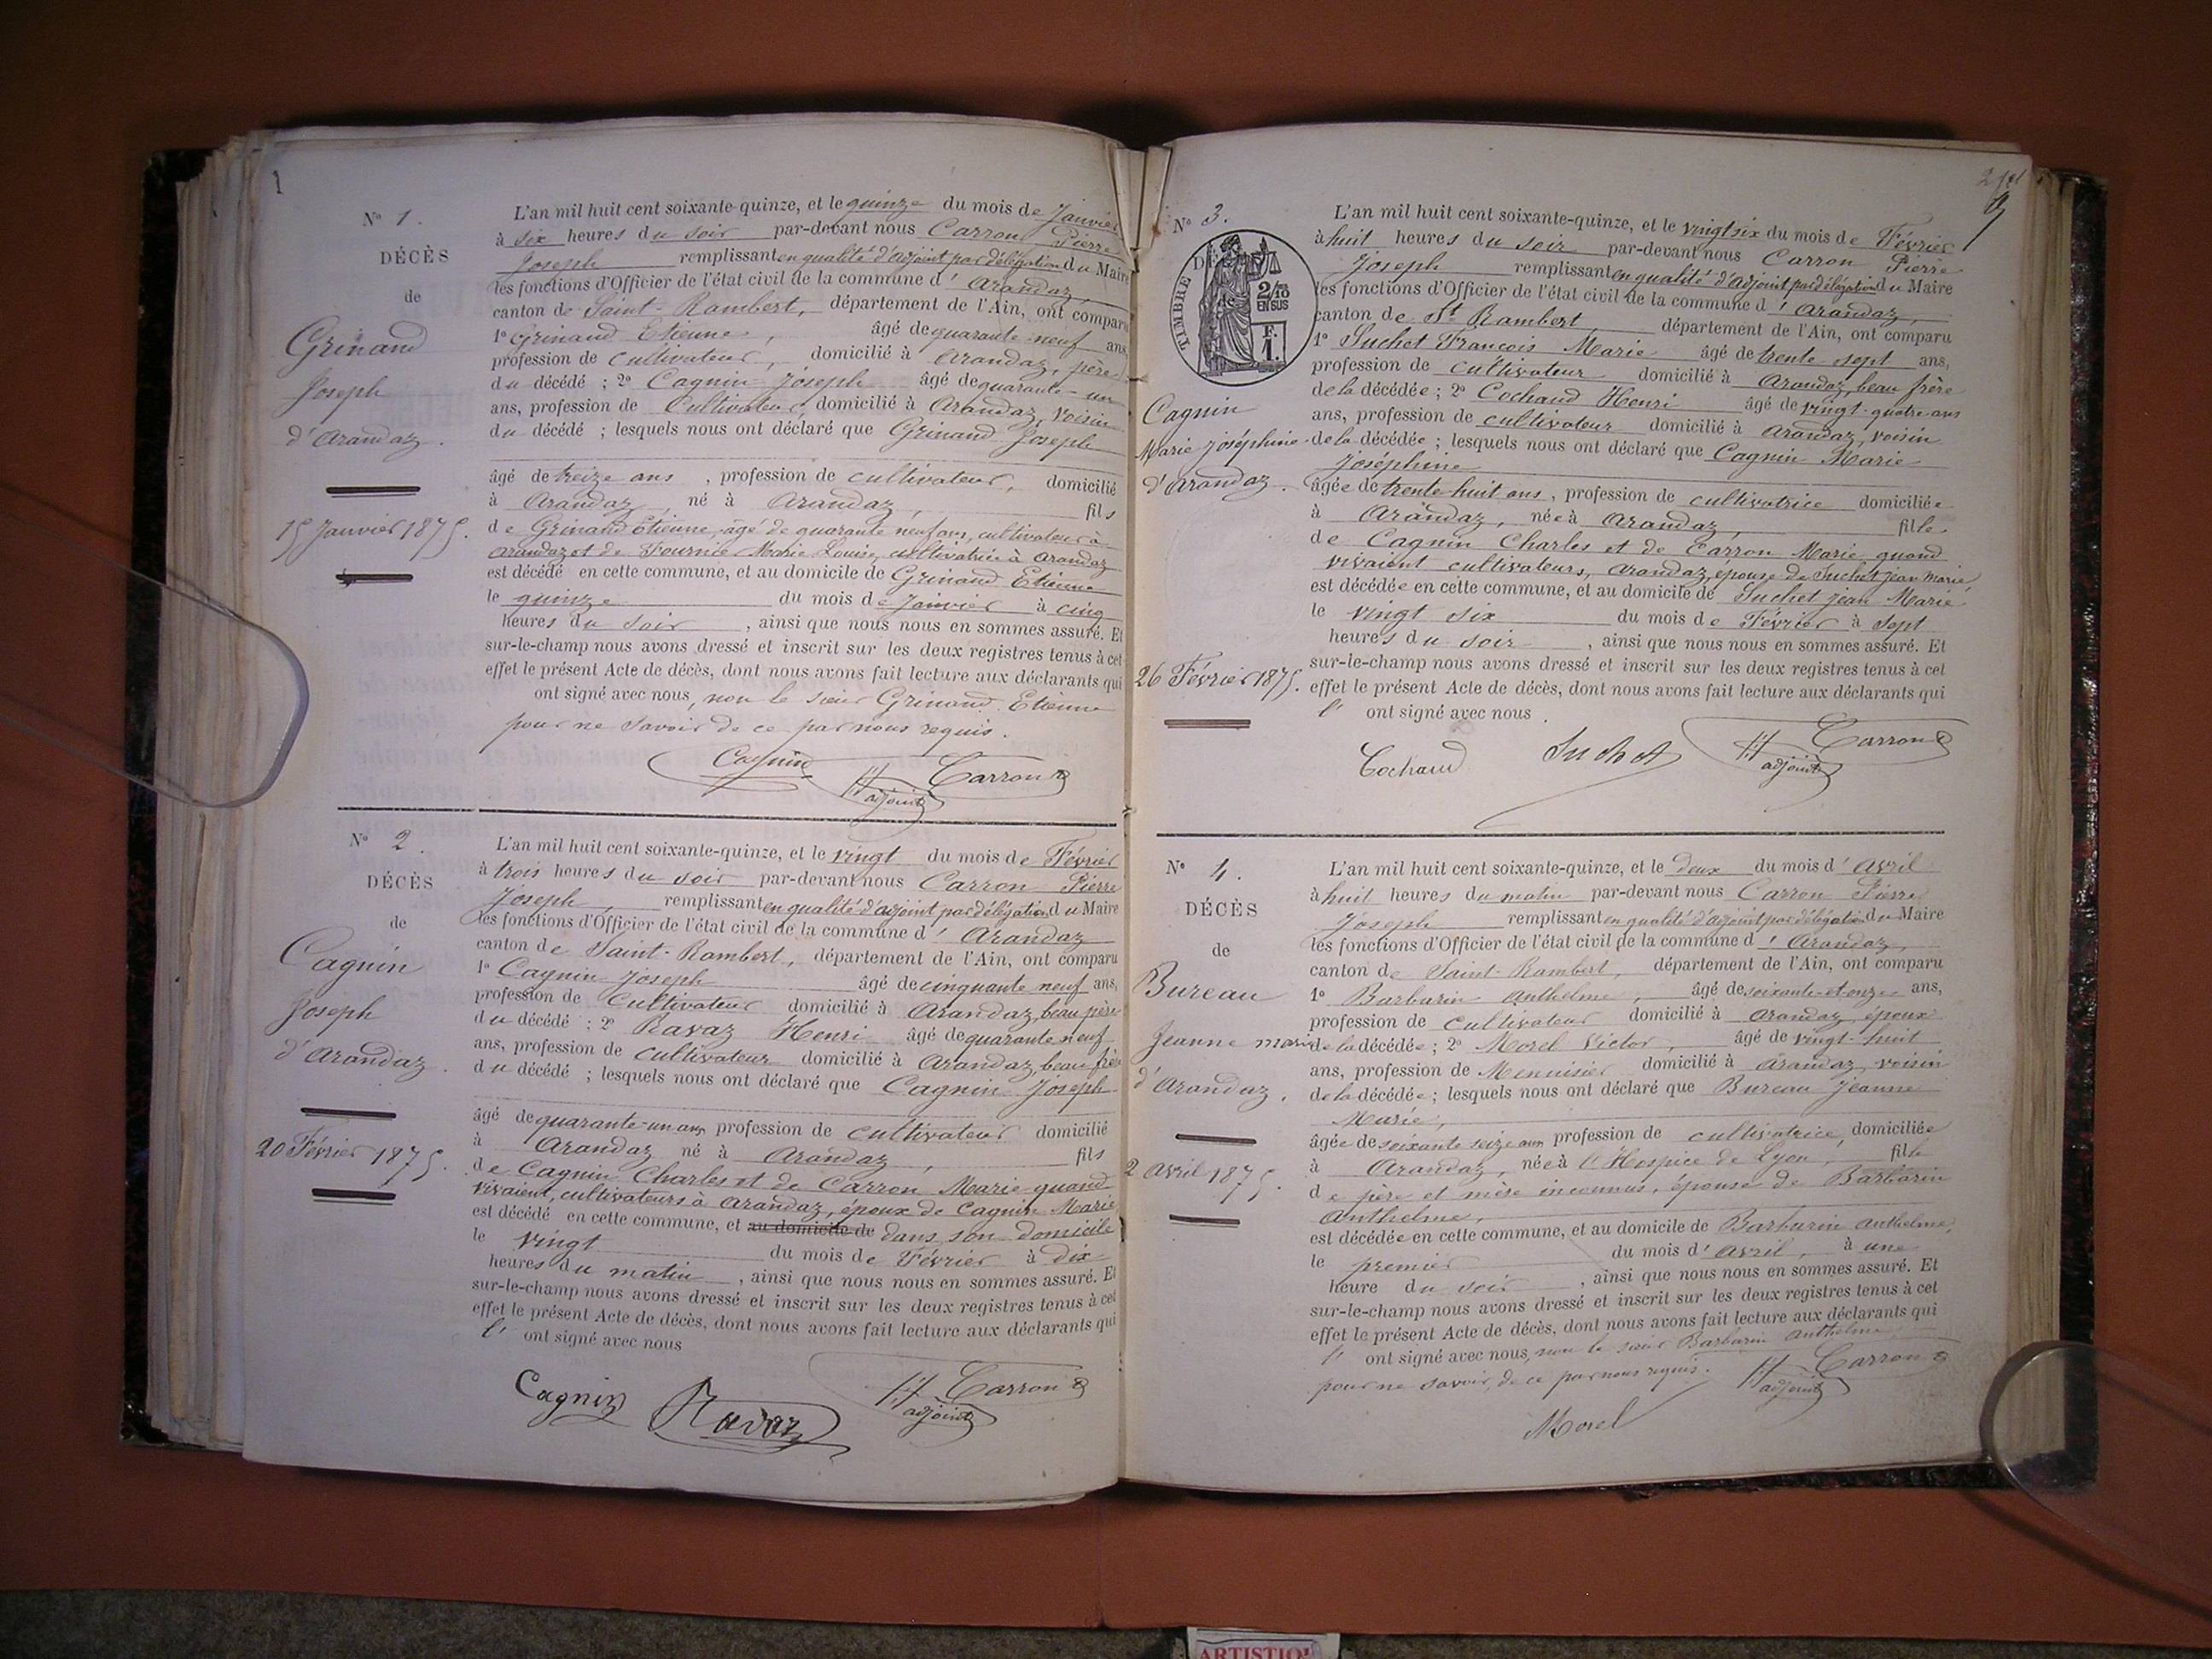 1
N° 1.
DÉCÈS
de
Grinand
Joseph
d'Arandaz.
15 Janvier 1875.
L'an mil huit cent soixante-quinze, et le quinze du mois de Janvier
à six heures du soir par-devant nous Carron Pierre
Joseph remplissant en qualité d'adjoint par délégation du Maire
les fonctions d'Officier de l'état civil de la commune d'Arandaz,
canton de Saint-Rambert, département de l'Ain, ont comparu
1° Grinand Etienne, âgé de quarante-neuf ans,
profession de cultivateur, domicilié à Arandaz, père
du décédé ; 2° Cagnin Joseph âgé de quarante-un
ans, profession de Cultivateur, domicilié à Arandaz, voisin
du décédé ; lesquels nous ont déclaré que Grinand Joseph
âgé de treize ans, profession de cultivateur, domicilié
à Arandaz, né à Arandaz, fils
de Grinand Etienne, âgé de quarante neuf ans, cultivateur à
Arandaz et de Fournier Marie Louise, cultivatrice à Arandaz
est décédé en cette commune, et au domicile de Grinand Etienne
le quinze du mois de Janvier à cinq
heures du soir, ainsi que nous nous en sommes assuré. Et
sur-le-champ nous avons dressé et inscrit sur les deux registres tenus à cet
effet le présent Acte de décès, dont nous avons fait lecture aux déclarants qui
ont signé avec nous, non le sieur Grinand Etienne
pour ne savoir de ce par nous requis.
Cagnin Carron
adjoint
N° 2.
DÉCÈS
de
Cagnin
Joseph
d'Arandaz.
20 Février 1875.
L'an mil huit cent soixante-quinze, et le vingt du mois de Février
à trois heures du soir par-devant nous Carron Pierre
Joseph, remplissant en qualité d'adjoint par délégation du Maire
les fonctions d'Officier de l'état civil de la commune d'Arandaz
canton de Saint-Rambert, département de l'Ain, ont comparu
1° Cagnin Joseph âgé de cinquante neuf ans,
profession de Cultivateur domicilié à Arandaz, beau père
du décédé ; 2° Ravaz Henri âgé de quarante neuf
ans, profession de cultivateur domicilié à Arandaz, beau frère
du décédé ; lesquels nous ont déclaré que Cagnin Joseph
âgé de quarante-un ans profession de cultivateur domicilié
à Arandaz né à Arandaz, fils
de Cagnin Charles et de Carron Marie quand
vivaient, cultivateurs à Arandaz, époux de Cagnin Marie
est décédé en cette commune, et au domicile de dans son domicile
le vingt du mois de Février à dix
heures du matin, ainsi que nous nous en sommes assuré. Et
sur-le-champ nous avons dressé et inscrit sur les deux registres tenus à cet
effet le présent Acte de décès, dont nous avons fait lecture aux déclarants qui
l' ont signé avec nous
Cagnin Ravaz Carron
adjoint
N° 3.
TIMBRE
2/10
EN SUS
F.
1.
Cagnin
Marie Joséphine
d'Arandaz.
26 Février 1875.
L'an mil huit cent soixante-quinze, et le vingt six du mois de Février
à huit heures du soir par-devant nous Carron Pierre
Joseph remplissant en qualité d'adjoint par délégation du Maire
les fonctions d'Officier de l'état civil de la commune d'Arandaz,
canton de St Rambert, département de l'Ain, ont comparu
1° Suchet François Marie âgé de trente-sept ans,
profession de cultivateur domicilié à Arandaz, beau frère
de la décédée ; 2° Cochaud Henri âgé de vingt-quatre ans
ans, profession de cultivateur domicilié à Arandaz, voisin
de la décédée ; lesquels nous ont déclaré que Cagnin Marie
Joséphine
âgée de trente-huit ans, profession de cultivatrice domiciliée
à Arandaz, née à Arandaz, fille
de Cagnin Charles et de Carron Marie quand
vivaient cultivateurs, Arandaz, épouse de Suchet Jean Marie
est décédée en cette commune, et au domicile de Suchet Jean Marie
le vingt six du mois de Février à sept
heures du soir, ainsi que nous nous en sommes assuré. Et
sur-le-champ nous avons dressé et inscrit sur les deux registres tenus à cet
effet le présent Acte de décès, dont nous avons fait lecture aux déclarants qui
l' ont signé avec nous.
Cochaud Suchet Carron
adjoint
N° 4.
DÉCÈS
de
Bureau
Jeanne marie
d'Arandaz.
2 Avril 1875.
L'an mil huit cent soixante-quinze, et le deux du mois d'Avril
à huit heures du matin par-devant nous Carron Pierre
Joseph remplissant en qualité d'adjoint par délégation du Maire
les fonctions d'Officier de l'état civil de la commune d'Arandaz,
canton de Saint-Rambert, département de l'Ain, ont comparu
1° Barbarin Anthelme, âgé de soixante-et-onze ans,
profession de cultivateur domicilié à Arandaz, époux
de la décédée ; 2° Morel Victor, âgé de vingt-huit
ans, profession de Menuisier domicilié à Arandaz, voisin
de la décédée ; lesquels nous ont déclaré que Bureau Jeanne
Marie,
âgée de soixante seize ans profession de cultivatrice, domiciliée
à Arandaz, née à l'Hospice de Lyon, fille
de père et mère inconnus, épouse de Barbarin
Anthelme,
est décédée en cette commune, et au domicile de Barbarin Anthelme,
le premier du mois d'Avril, à une
heure du soir, ainsi que nous nous en sommes assuré. Et
sur-le-champ nous avons dressé et inscrit sur les deux registres tenus à cet
effet le présent Acte de décès, dont nous avons fait lecture aux déclarants qui
l' ont signé avec nous, non le sieur Barbarin Anthelme,
pour ne savoir, de ce par nous requis. Carron
adjoint
Morel
ARTISTIQUE